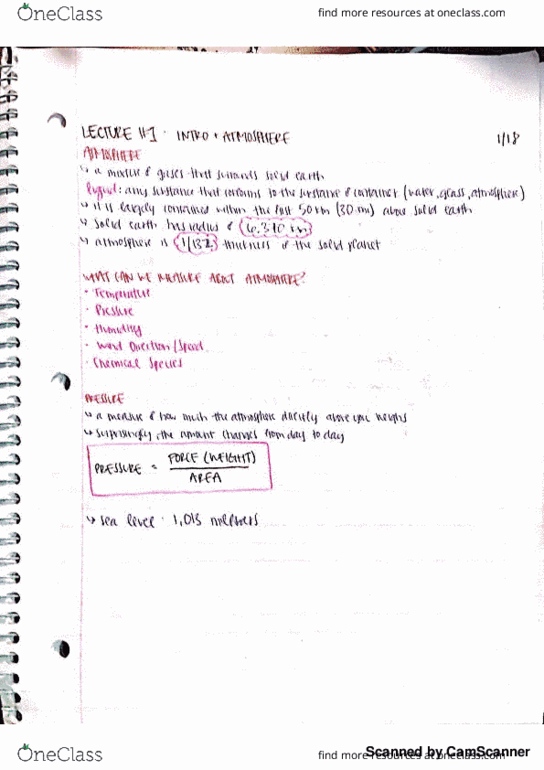 OneClass find more resources at oneclass.com
LECTURE #1 · INTRO + ATMOSPHERE 1/18
ATMOSPHERE
↳ a mixture of gases that surrounds solid earth
: any substance that conforms to the of container (water, glass, atmosphere)
↳ it is largely contained within the 50 km (30 mi) above solid earth
↳ solid earth has radius of 6,370 km
↳ atmosphere is 1/132 thickness of the solid planet
WHAT CAN WE MEASURE ABOUT ATMOSPHERE?
· Temperature
· Pressure
· Humidity
· Wind Direction/Speed
· Chemical Species
PRESSURE
↳ a measure of how much the atmosphere directly above you weighs
↳ surprisingly, the amount changes from day to day
PRESSURE = FORCE (WEIGHT)
AREA
↳ sea level · 1,013 millibars
OneClass find more resources at oneclass.com
Scanned by CamScanner